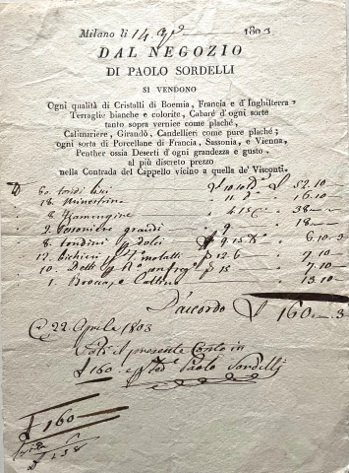 Milano lì 14 Ap.le 1803
DAL NEGOZIO
DI PAOLO SORDELLI
SI VENDONO
Ogni qualità di Cristalli di Boemia, Francia e d'Inghilterra,
Terraglie bianche e colorite, Cabarè d'ogni sorte
tanto sopra vernice come plaché,
Calimariere, Girandò, Candellieri come pure plaché;
ogni sorta di Porcellane di Francia, Sassonia, e Vienna,
Penther ossia Deserti d'ogni grandezza e gusto.
al più discreto prezzo
nella Contrada del Cappello vicino a quella de' Visconti.
60. tondi lisci 52.10
18. Minestrine 16.10
8. 4.15 38
2. grandi 9 18
8. tondini p dolci 6.10.3
12. bichieri 12.6 7.10
10. Detti p 15 7.10
1. Brocca, e Catino 13.10
D'accordo £ 160.3
22 Aprile 1803
il presente Conto in
£ 160 Paolo Sordelli
£ 160